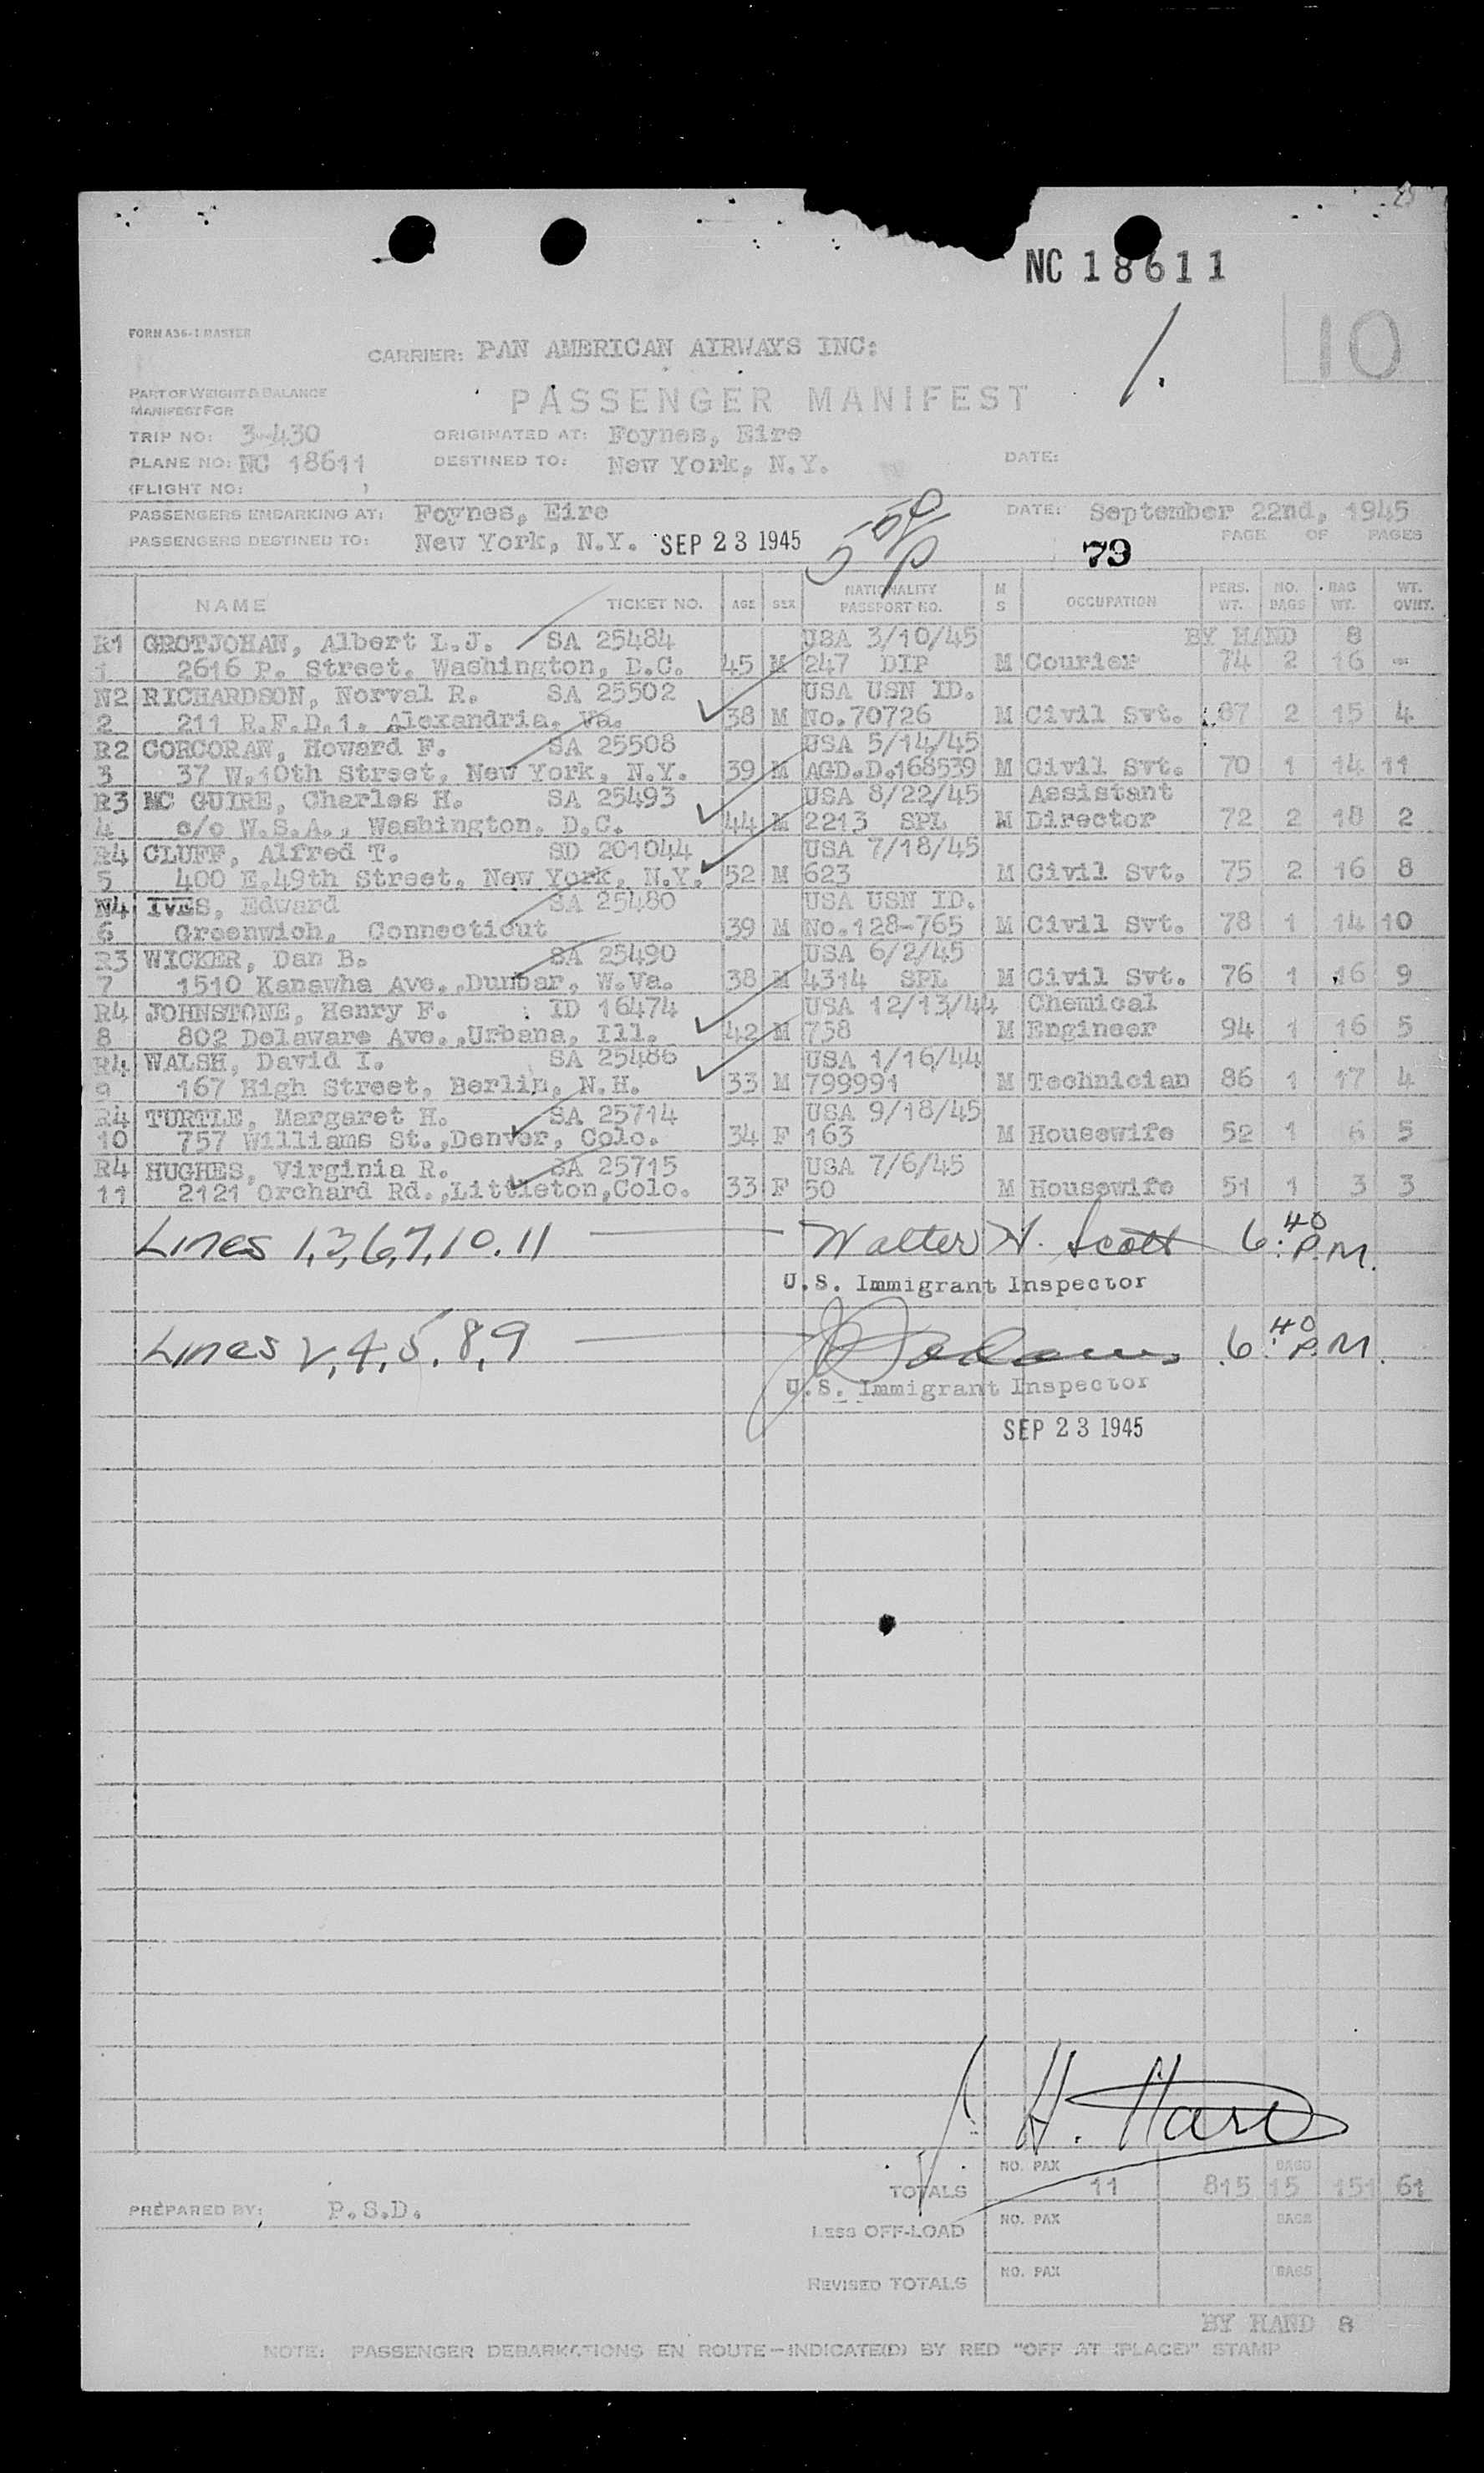 NC 18611
10
FORM A36-1 MASTER
CARRIER: PAN AMERICAN AIRWAYS INC:
1.
PART OF WEIGHT & BALANCE
MANIFEST FOR
PASSENGER MANIFEST
TRIP NO: 3-430 ORIGINATED AT: Foynes, Eire
PLANE NO: NC 18611 DESTINED TO: New York, N.Y. DATE:
(FLIGHT NO: )
PASSENGERS EMBARKING AT: Foynes, Eire DATE: September 22nd, 1945
PASSENGERS DESTINED TO: New York, N.Y. SEP 23 1945 79 PAGE OF PAGES
NAME TICKET NO. AGE SEX NATIONALITY PASSPORT NO. M S OCCUPATION PERS. WT. NO. BAGS BAG WT. WT. OVHT.
R1 GROTJOHAN, Albert L.J. SA 25484 USA 3/10/45 BY HAND 8
1 2616 P. Street, Washington, D.C. 45 M 247 DIP M Courier 74 2 16 -
N2 RICHARDSON, Norval R. SA 25502 USA USN ID.
2 211 R.F.D.1, Alexandria, Va. 38 M No.70726 M Civil Svt. 87 2 15 4
R2 CORCORAN, Howard F. SA 25508 USA 5/14/45
3 37 W.10th Street, New York, N.Y. 39 M AGD.D.168539 M Civil Svt. 70 1 14 11
R3 MC GUIRE, Charles H. SA 25493 USA 8/22/45 Assistant
4 c/o W.S.A., Washington, D.C. 44 M 2213 SPL M Director 72 2 18 2
R4 CLUFF, Alfred T. SD 201044 USA 7/18/45
5 400 E.49th Street, New York, N.Y. 52 M 623 M Civil Svt. 75 2 16 8
N4 IVES, Edward SA 25480 USA USN ID.
6 Greenwich, Connecticut 39 M No.128-765 M Civil Svt. 78 1 14 10
R3 WICKER, Dan B. SA 25490 USA 6/2/45
7 1510 Kanawha Ave.,Dunbar, W.Va. 38 M 4314 SPL M Civil Svt. 76 1 16 9
R4 JOHNSTONE, Henry F. ID 16474 USA 12/13/44 Chemical
8 802 Delaware Ave.,Urbana, Ill. 42 M 758 M Engineer 94 1 16 5
R4 WALSH, David I. SA 25486 USA 1/16/44
9 167 High Street, Berlin, N.H. 33 M 799991 M Technician 86 1 17 4
R4 TURTLE, Margaret H. SA 25714 USA 9/18/45
10 757 Williams St.,Denver, Colo. 34 F 163 M Housewife 52 1 6 5
R4 HUGHES, Virginia R. SA 25715 USA 7/6/45
11 2121 Orchard Rd.,Littleton,Colo. 33 F 50 M Housewife 51 1 3 3
Lines 1,3,6,7,10,11 Walter H. Scott 6:40 P.M.
U.S. Immigrant Inspector
Lines 2,4,5,8,9 6:40 P.M.
U.S. Immigrant Inspector
SEP 23 1945
TOTALS NO. PAX 11 815 BAGS 15 151 61
PREPARED BY: P.S.D.
LESS OFF-LOAD NO. PAX BAGS
REVISED TOTALS NO. PAX BAGS
BY HAND 8
NOTE: PASSENGER DEBARKATIONS EN ROUTE—INDICATE(D) BY RED "OFF AT (PLACE)" STAMP